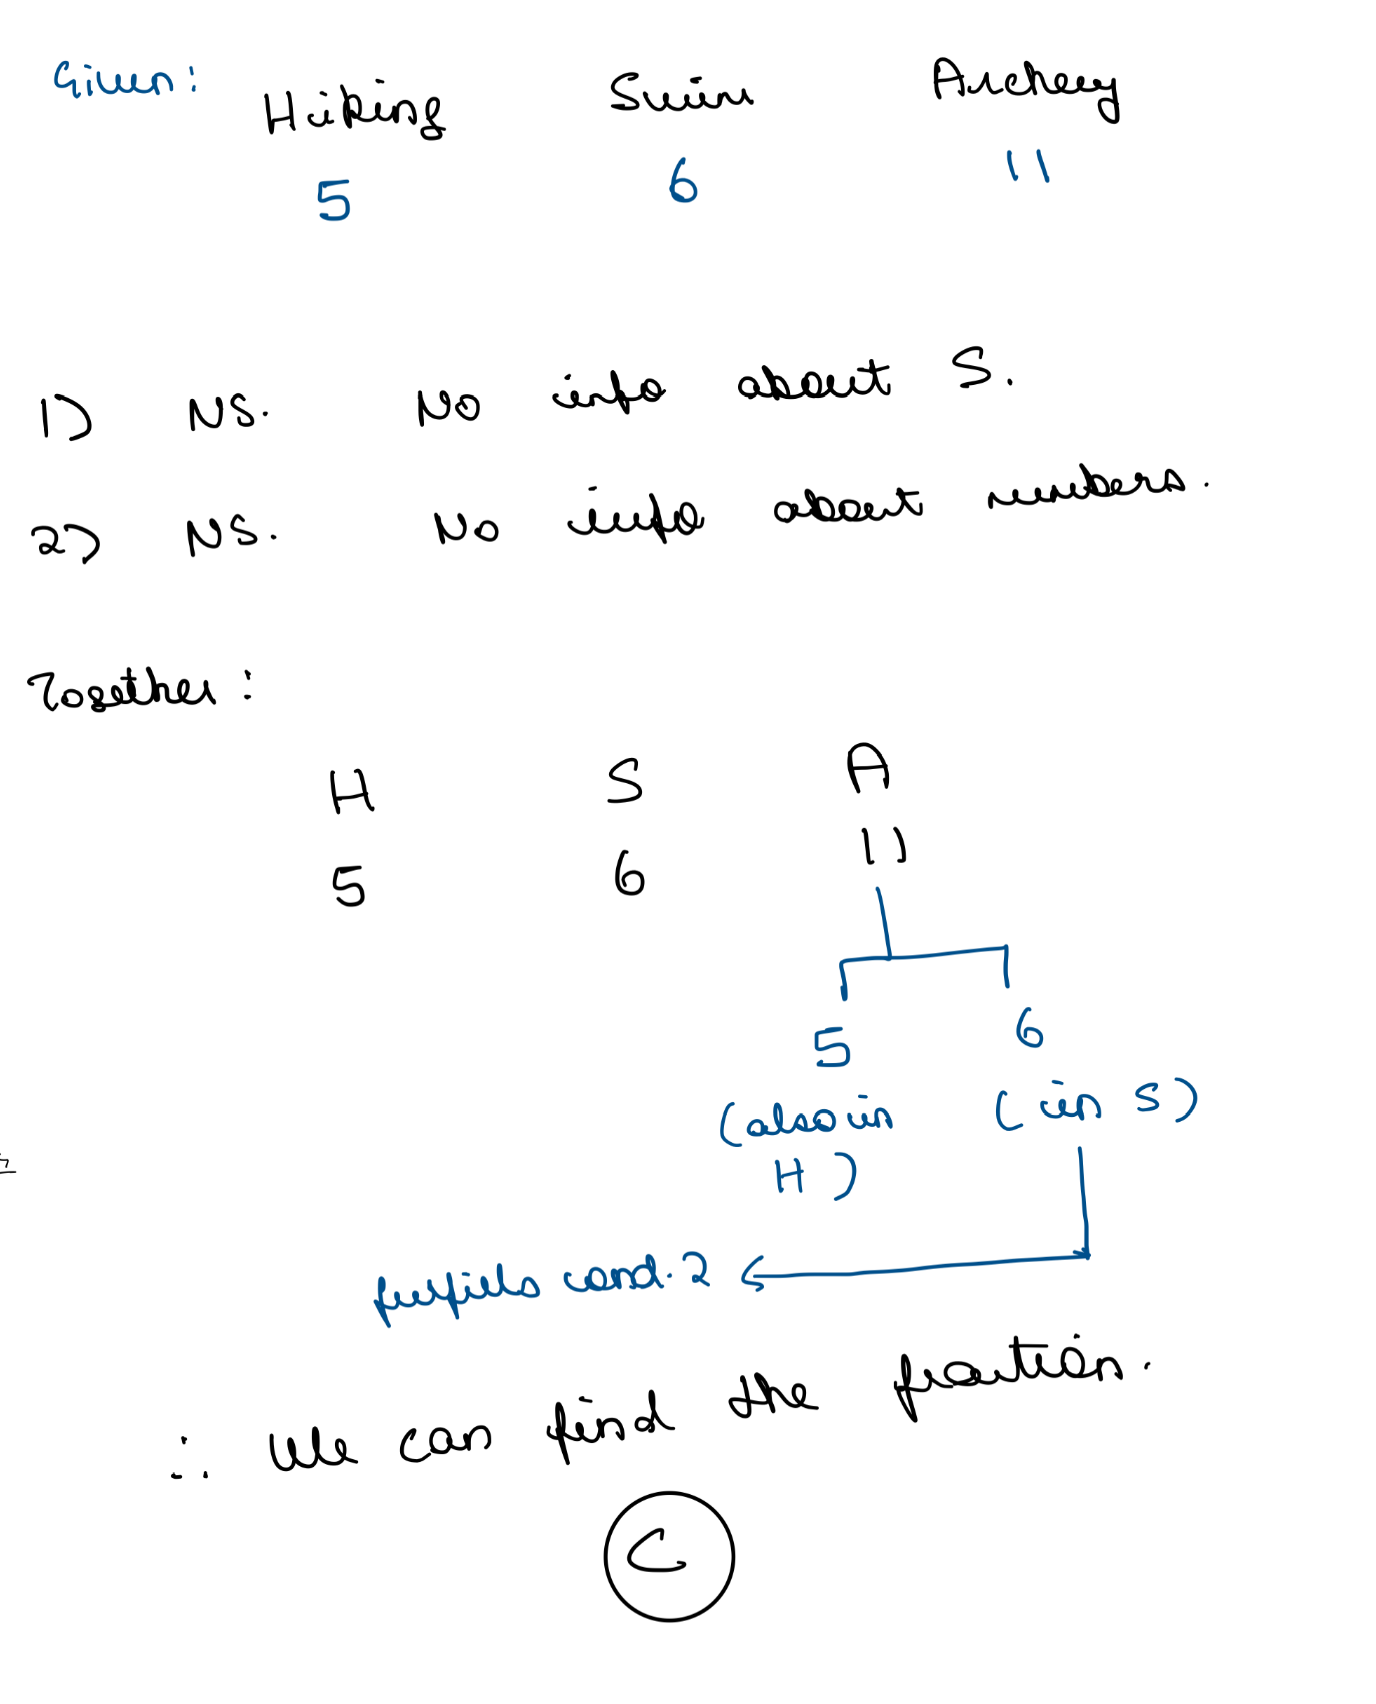 Given:
Hiking Swim Archery
5 6 11
1) NS. No info about S.
2) NS. No info about numbers.
Together:
H S A
5 6 11
5 6
(also in (in S)
H)
fulfills cond. 2
∴ We can find the fraction.
C